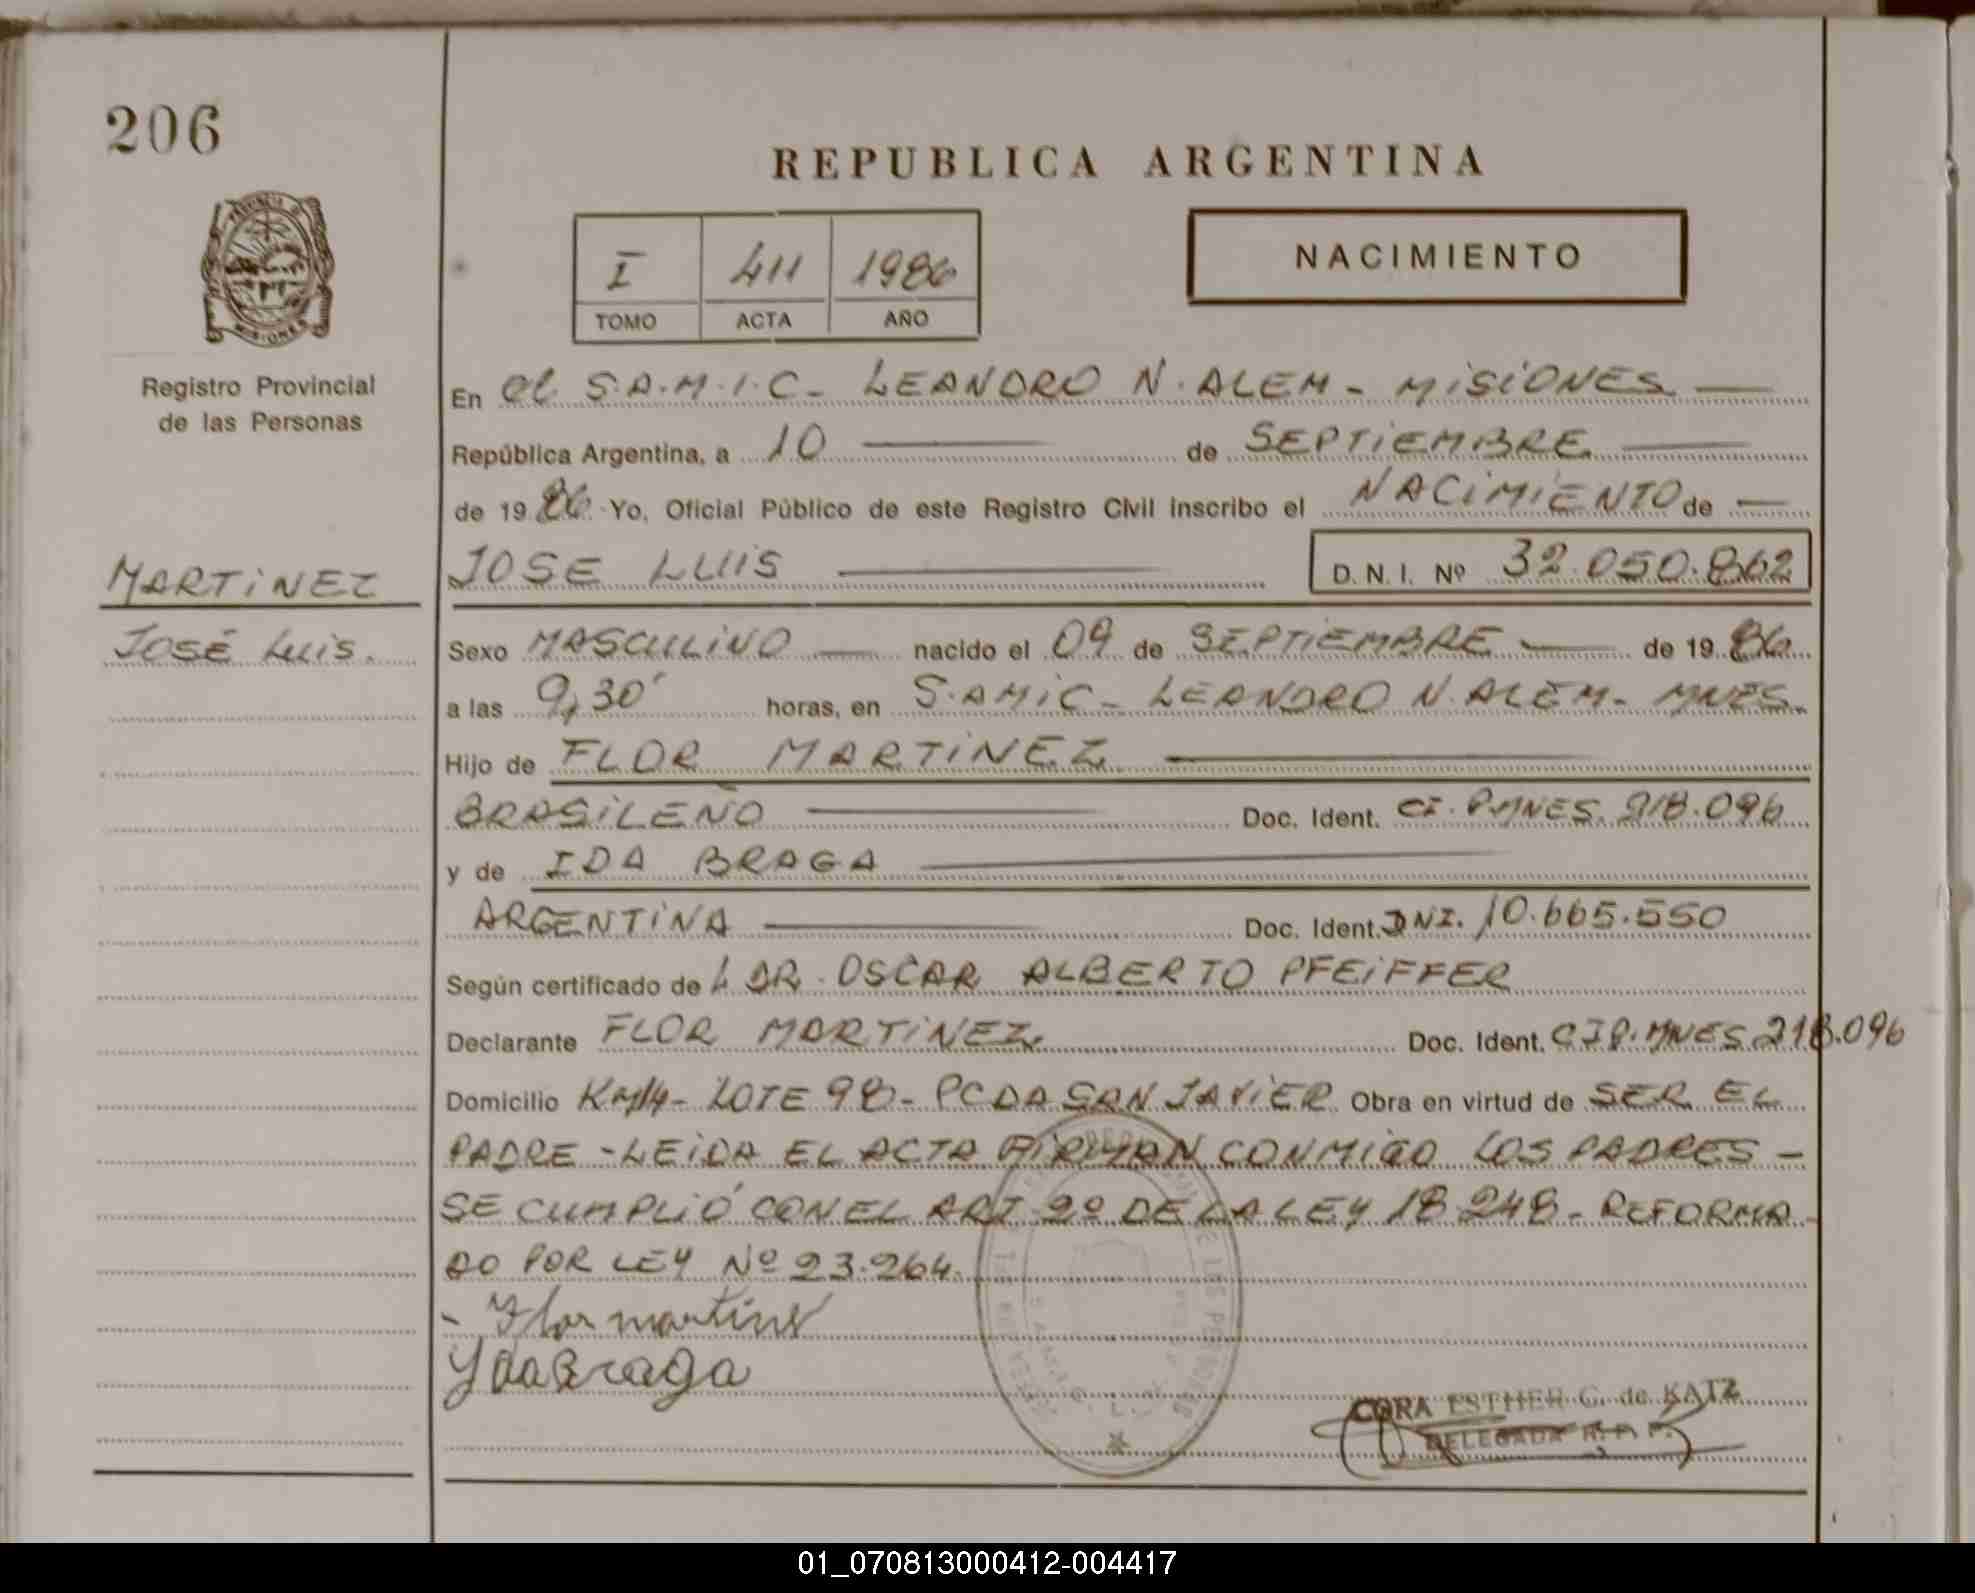 206
REPUBLICA ARGENTINA
I 411 1986
TOMO ACTA AÑO
NACIMIENTO
MISIONES
Registro Provincial
de las Personas
MARTINEZ
JOSÉ LUIS.
En el S.A.M.I.C- LEANDRO N. ALEM - MISIONES
República Argentina, a 10 de SEPTIEMBRE
de 1986 Yo, Oficial Público de este Registro Civil inscribo el NACIMIENTO de
JOSE LUIS D. N. I. Nº 32.050.862
Sexo MASCULINO nacido el 09 de SEPTIEMBRE de 1986
a las 9,30' horas, en S.AMIC- LEANDRO N. ALEM- MNES.
Hijo de FLOR MARTINEZ
BRASILEÑO Doc. Ident. CI. P.MNES. 218.096
y de IDA BRAGA
ARGENTINA Doc. Ident. DNI. 10.665.550
Según certificado de DR. OSCAR ALBERTO PFEIFFER
Declarante FLOR MARTINEZ. Doc. Ident. CIP.MNES 218.096
Domicilio KM14- LOTE 98- PCDA SAN JAVIER Obra en virtud de SER EL
PADRE - LEIDA EL ACTA FIRMAN CONMIGO LOS PADRES -
SE CUMPLIÓ CON EL ART 2º DE LA LEY 18.248- REFORMA
DO POR LEY Nº 23.264.
- Flor martinez
Yda Braga
CORA ESTHER G. de KATZ
DELEGADA R. P. P.
01_070813000412-004417